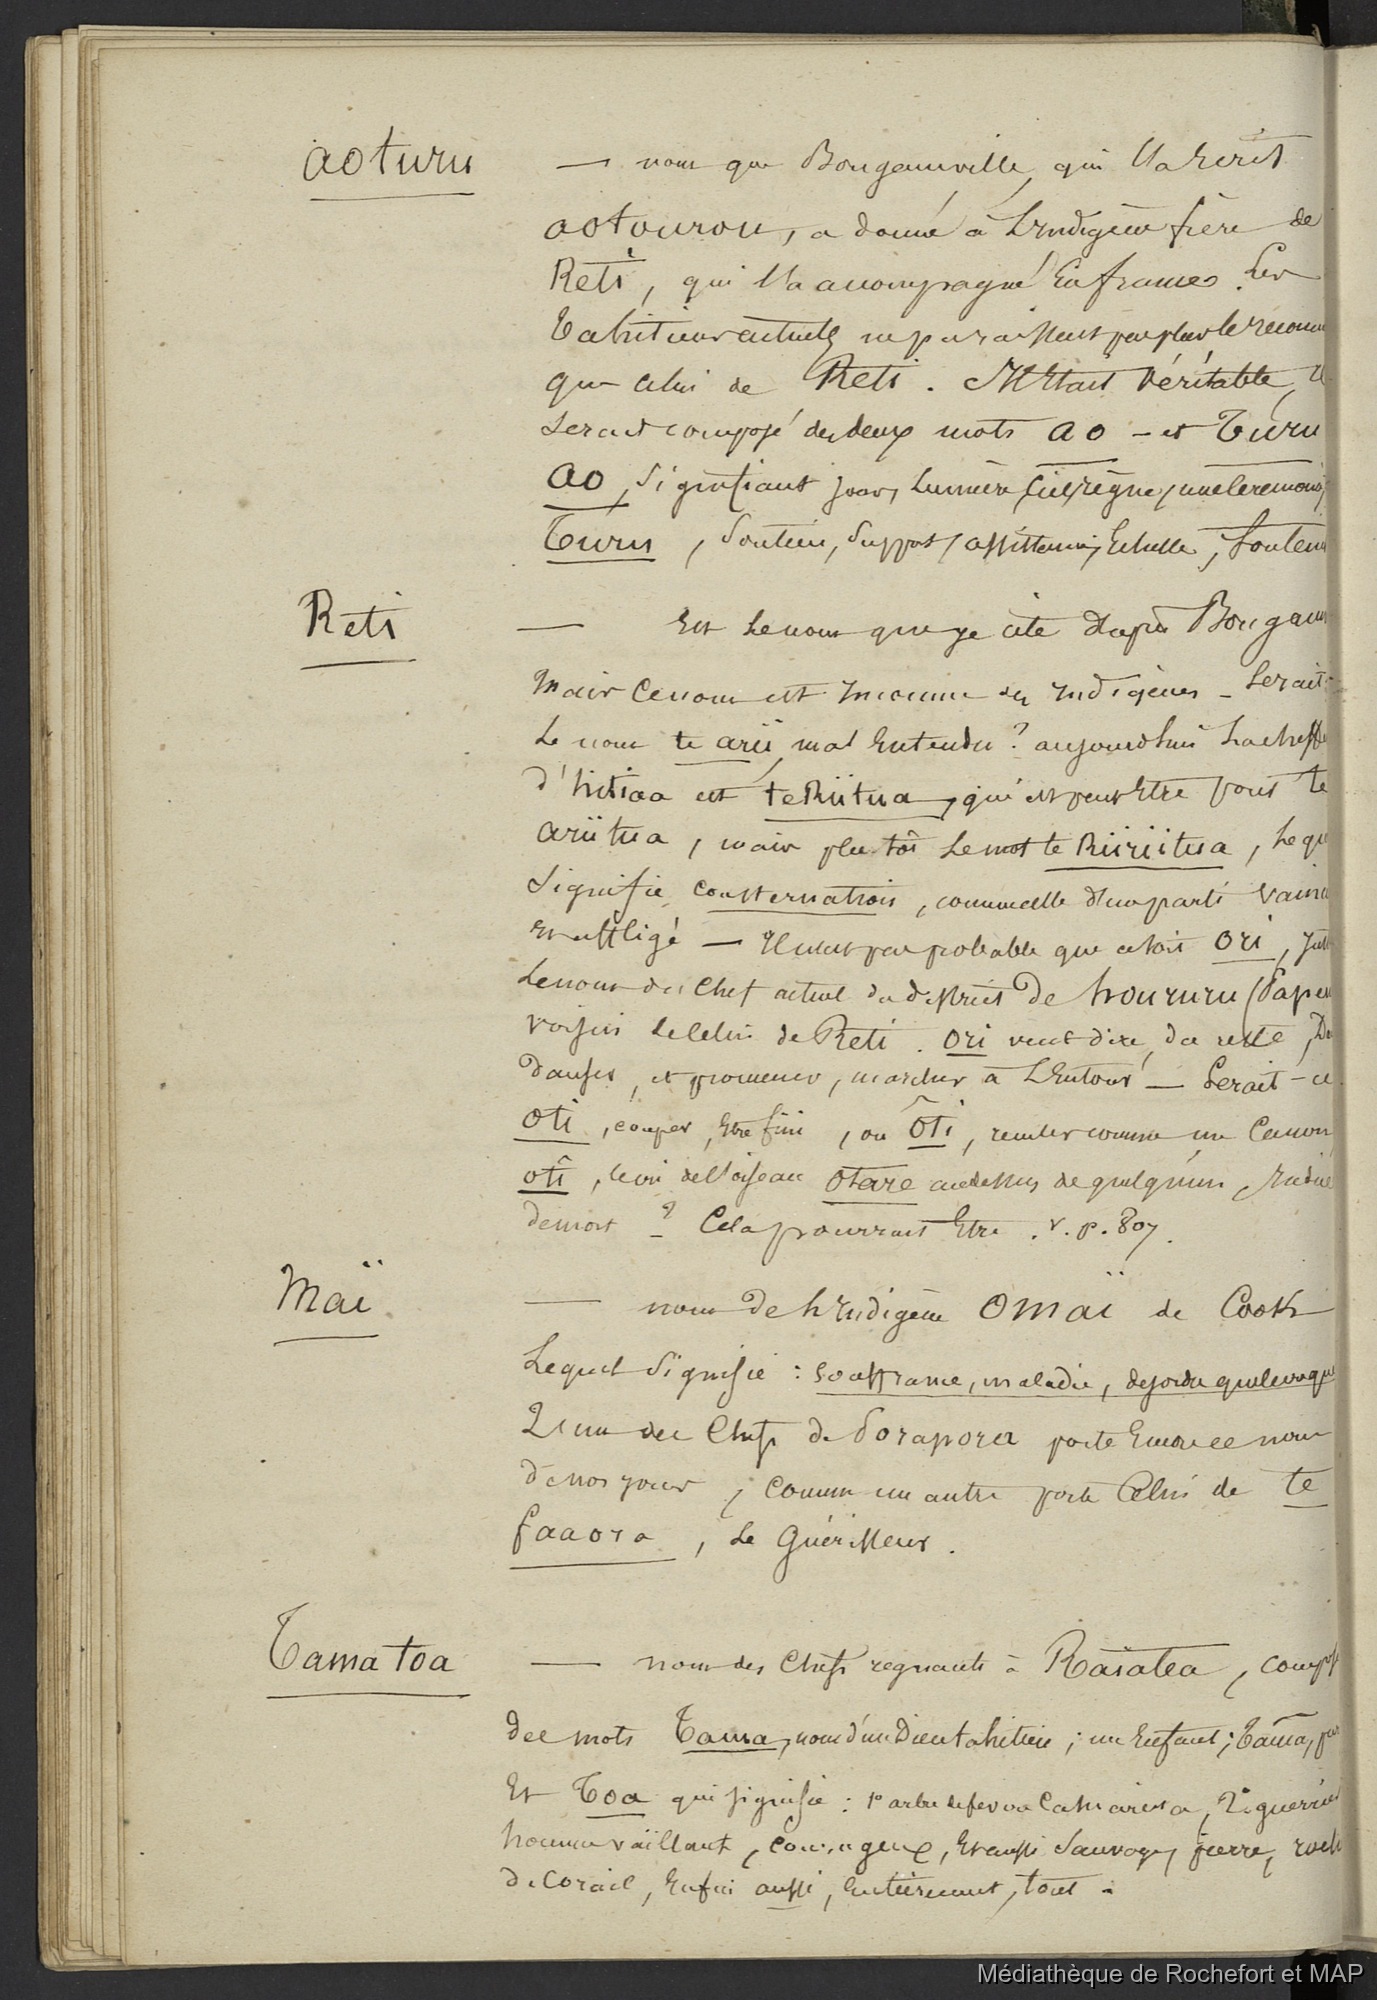 aoturu — nom que Bougainville, qui l'a écrit
aotourou, a donné à l'indigène frère de
Reti, qui l'a accompagné en france. Les
Tahitiens actuels ne paraissent pas plus le reconn
que celui de Reti. S'il était véritable, il
serait composé des deux mots ao — et Turu
ao, signifiant jour, lumière, ciel, règne, une ceremonie,
Turu, soutien, support, assistance, Echelle, soutenir
Reti — Est le nom que je cite d'après Bougain
mais ce nom est inconnu des indigènes — serait-
le nom te arii, mal entendu? aujourd'hui la cheffe
d'hitiaa est teRiitua, qui est peut être pour te
ariitua, mais plutôt le mot te Riiriitua, lequ
signifie consternation, comme celle d'un parti vainc
et affligé — Il n'est pas probable que ce soit ori, just
le nom du chef actuel du district de houruru (Papeu
voisin de celui de Reti. ori veut dire, du reste, Da
danser, et promener, marcher à l'entour — Serait-ce
oti, couper, être fini, ou ôti, reculer comme un canon
otî, le cri de l'oiseau otare au dessus de quelqu'un, indice
de mort? Cela pourrait être. v. p. 807.
Maï — nom de l'indigène Omaï de Cook
Lequel signifie: souffrance, maladie, desordre quelconque
L'un des chefs de Borapora porte encore ce nom
de nos jours, comme un autre porte celui de te
faaora, le Guérisseur.
Tamatoa — nom des chefs regnants à Raiatea, compos
des mots Tama, nom d'un Dieu tahitien; un Enfant; Tâma, pur
Et Toa qui signifie: 1° arbre de fer ou Casuarina, 2° guerrier
homme vaillant, courageux, Et aussi sauvage, pierre, roch
de corail, Enfin aussi, Entièrement, tout.
Médiathèque de Rochefort et MAP